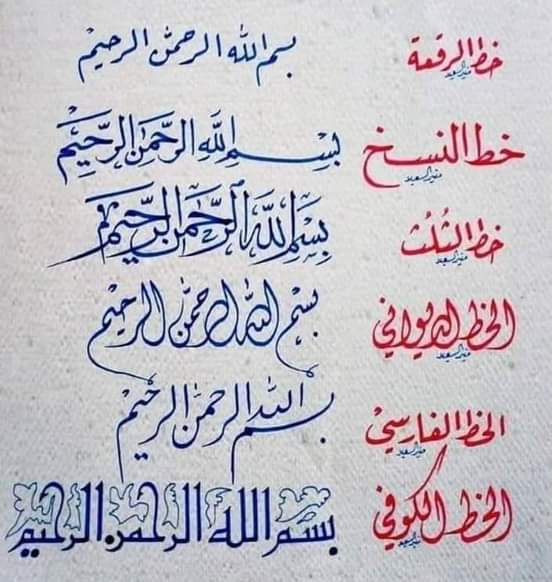 خط الرقعة بسم الله الرحمن الرحيم
خط النسخ بِسْمِ اللَّهِ الرَّحْمَنِ الرَّحِيمِ
خط الثُلُث بِسْمِ اللَّهِ الرَّحْمَنِ الرَّحِيمِ
الخط الديواني بسم الله الرحمن الرحيم
الخط الفارسي بسم الله الرحمن الرحيم
الخط الكوفي بسم الله الرحمن الرحيم